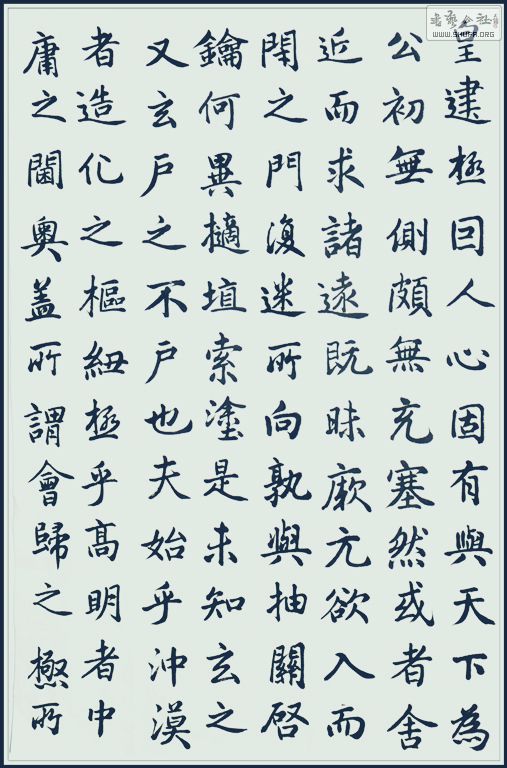 書藝公社
WWW.SHUFA.ORG
皇建極囙人心固有與天下為
公初無側頗無充塞然或者舍
近而求諸遠既昧厥元欲入而
閇之門復迷所向孰與抽關啓
鑰何異擿埴索塗是未知玄之
又玄戶之不戶也夫始乎沖漠
者造化之樞紐極乎高明者中
庸之閫奧蓋所謂會歸之極所